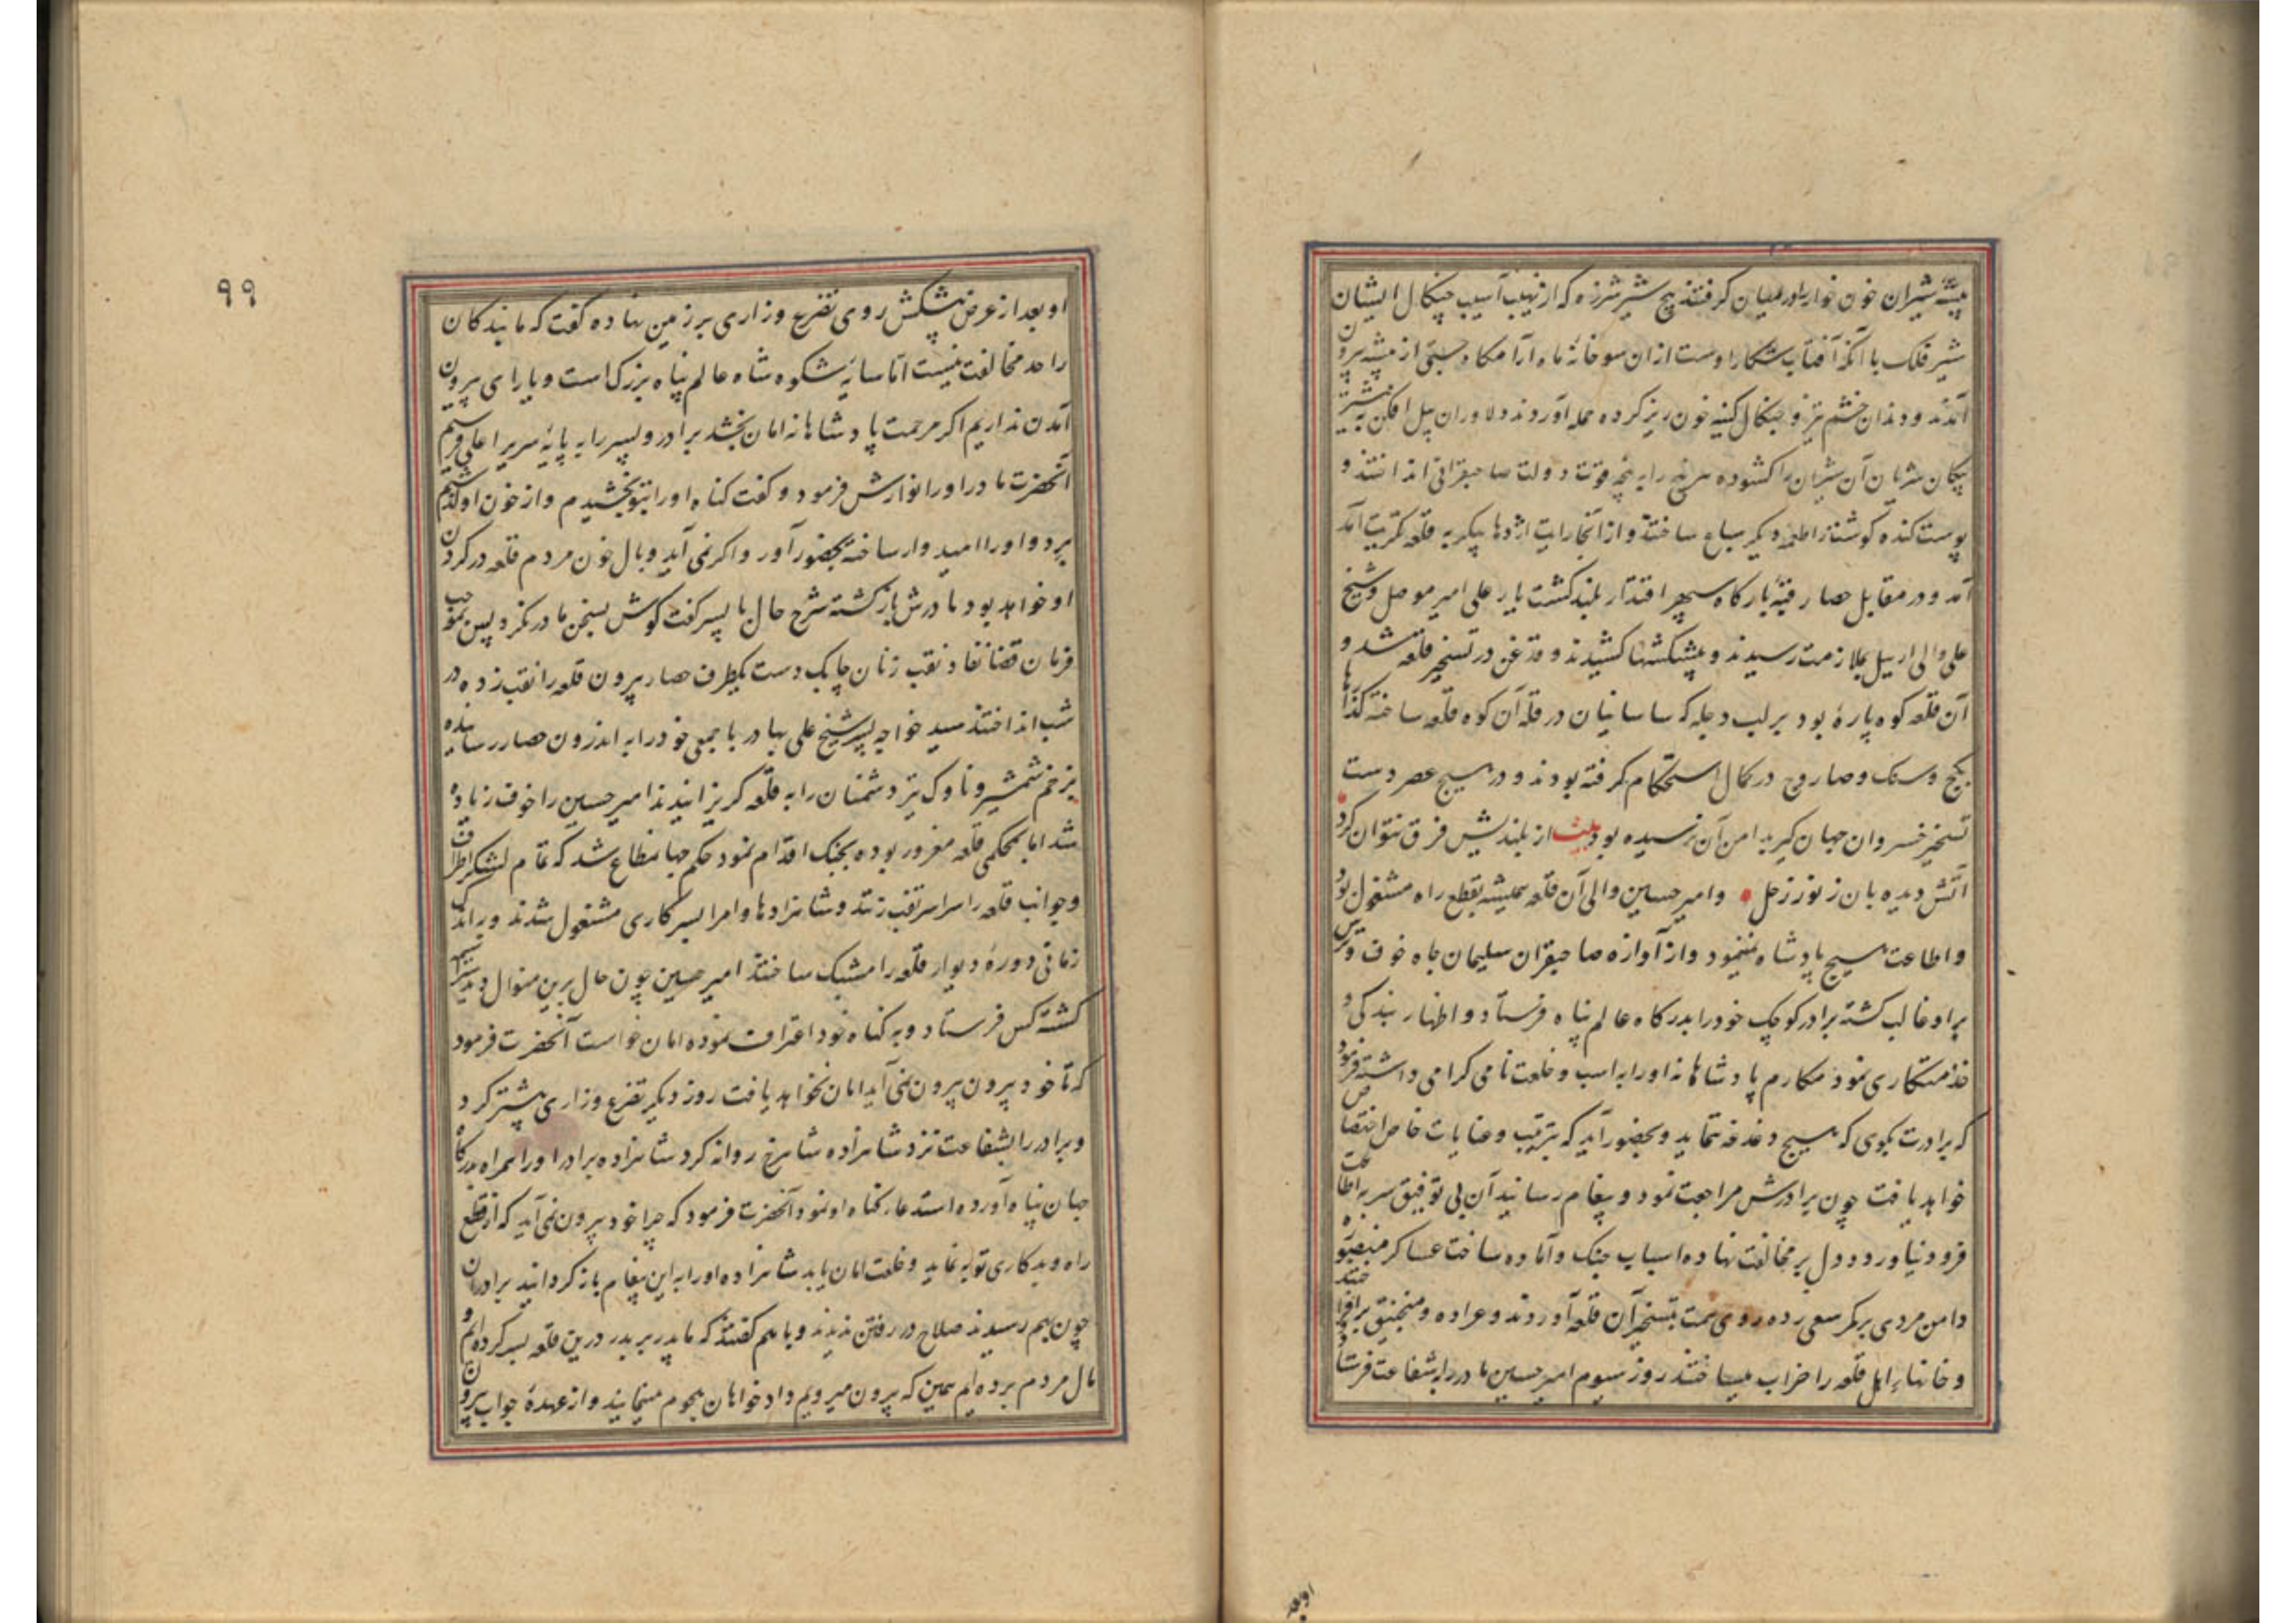 بیشهٔ شیران خون خوار را در میان گرفتند هیچ شیر شرزه که از نهیب آسیب چنکال ایشان
شیر فلک با آنکه آفتاب شکار اوست از ان سو خانهٔ ماه آرامکاه جستی از بیشه بیرون
آمدند و دندان خشم تیز و چنکال کینه خون ریز کرده حمله آوردند دلاوران پیل افکن به نیشتر
پیکان شریان آن شیران را کشوده سر پنجه قوت دولت صاحبقرانی انداختند و
پوست کنده کوشت از اطعمه دیکر سباع ساختند و از آنجا رایت اژدها پیکر به قلعه تکریت آمد
آمد و در مقابل حصار قبهٔ بارکاه سپهر اقتدار بلند کشت یار علی امیر موصل و شیخ
علی والی اربیل بملازمت رسیدند و پیشکشها کشیدند و قدغن در تسخیر قلعه شد و
آن قلعه کوه پارهٔ بود بر لب دجله که ساسانیان در قلهٔ آن کوه قلعه ساخته کذارها
بکچ و سنک و صاروج در کمال استحکام کرفته بودند و در هیچ عصر دست
تسخیر خسروان جهان کیر بدامن آن نرسیده بود بیت از بلندیش فرق نتوان کرد
آتش دیده بان ز نور زحل وامیر حسین والی آن قلعه همیشه بقطع راه مشغول بود
و اطاعت هیچ پادشاه ننمود و از آوازه صاحبقران سلیمان جاه خوف و ترس
براو غالب کشته برادر کوچک خود را بدرکاه عالم پناه فرستاد و اظهار بندکی و
خدمتکاری نمود مکارم پادشاهانه اورا به اسب و خلعت نامی کرامی داشته فرمود
که برادرت بکوی که هیچ دغدغه ننماید و بحضور آید که بتربیت و عنایات خاص اختصاص
خواهد یافت چون برادرش مراجعت نمود و پیغام رسانید آن بی توفیق سر به اطاعت
فرود نیاورد و دل بر مخالفت نهاده اسباب جنک و آماده ساخت عساکر منصوره
دامن مردی بر کمر سعی زده روی همت بتسخیر آن قلعه آوردند و عراده و منجنیق برافراختند
و خانهاء اهل قلعه را خراب میساختند روز سیوم امیر حسین مادر را بشفاعت فرستاد
او بعد
۹۹
او بعد از عرض پیشکش روی تضرع و زاری بر زمین نهاده کفت که ما بندکان
را حد مخالفت نیست اما سایهٔ شکوه شاه عالم پناه بزرک است و یارای بیرون
آمدن نداریم اکر مرحمت پادشاهانه امان بخشد برادر و پسر را به پایهٔ سریر اعلی فرستیم
آنحضرت مادر او را نوازش فرمود و کفت کناه او را بتو بخشیدم و از خون او کذشتیم
برو و او را امیدوار ساخته بحضور آور و اکر نمی آید وبال خون مردم قلعه در کردن
او خواهد بود مادرش بازکشته شرح حال با پسر کفت کوش بسخن مادر نکرد پس بموجب
فرمان قضا نفاذ نقب زنان چابک دست یکطرف حصار بیرون قلعه را نقب زده در
شب انداختند سید خواجه پسر شیخ علی بهادر با جمعی خود را به اندرون حصار رسانیده
بزخم شمشیر و ناوک تیز دشمنان را به قلعه کریزانیدند امیر حسین را خوف زیاده
شد اما بمحکمی قلعه مغرور بوده بجنک اقدام نمود حکم جهانمطاع شد که تمام لشکر اطراف
و جوانب قلعه را سراسر نقب زنند و شاهزادها و امرا بسرکاری مشغول شدند و به اندک
زمانی دورهٔ دیوار قلعه را مشبک ساختند امیر حسین چون حال برین منوال دید سراسیمه
کشته کس فرستاد و به کناه خود اعتراف نموده امان خواست آنحضرت فرمود
که تا خود بیرون بیرون نمی آید امان نخواهد یافت روز دیکر تضرع و زاری بیشتر کرد
و برادر را بشفاعت نزد شاهزاده شاهرخ روانه کرد شاهزاده برادر او را همراه بدرکاه
جهان پناه آورده استدعا کناه او نمود آنحضرت فرمود که چرا خود بیرون نمی آید که از قطع
راه و بدکاری توبه نماید و خلعت امان یابد شاهزاده او را به این پیغام باز کردانید برادران
چون بهم رسیدند صلاح در رفتن ندیدند و با هم کفتند که ما پدر بر پدر درین قلعه بسر کرده ایم و
مال مردم برده ایم همین که بیرون میرویم دادخواهان هجوم مینمایند و از عهدهٔ جواب بیرون